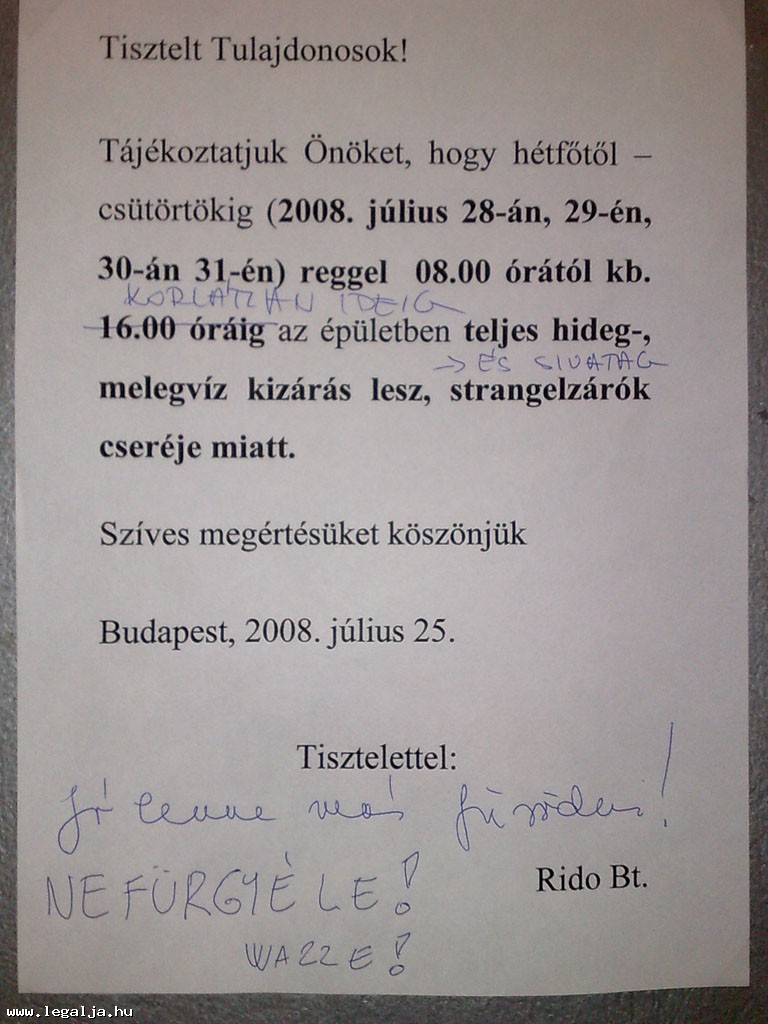 Tisztelt Tulajdonosok!
Tájékoztatjuk Önöket, hogy hétfőtől –
csütörtökig (2008. július 28-án, 29-én,
30-án 31-én) reggel 08.00 órától kb.
KORLÁTLAN IDEIG
16.00 óráig az épületben teljes hideg-,
→ ÉS SIVATAG
melegvíz kizárás lesz, strangelzárók
cseréje miatt.
Szíves megértésüket köszönjük
Budapest, 2008. július 25.
Tisztelettel:
Jó lenne már fürödni!
NE FÜRGYÉ LE!
Rido Bt.
WAZZE!
www.legalja.hu